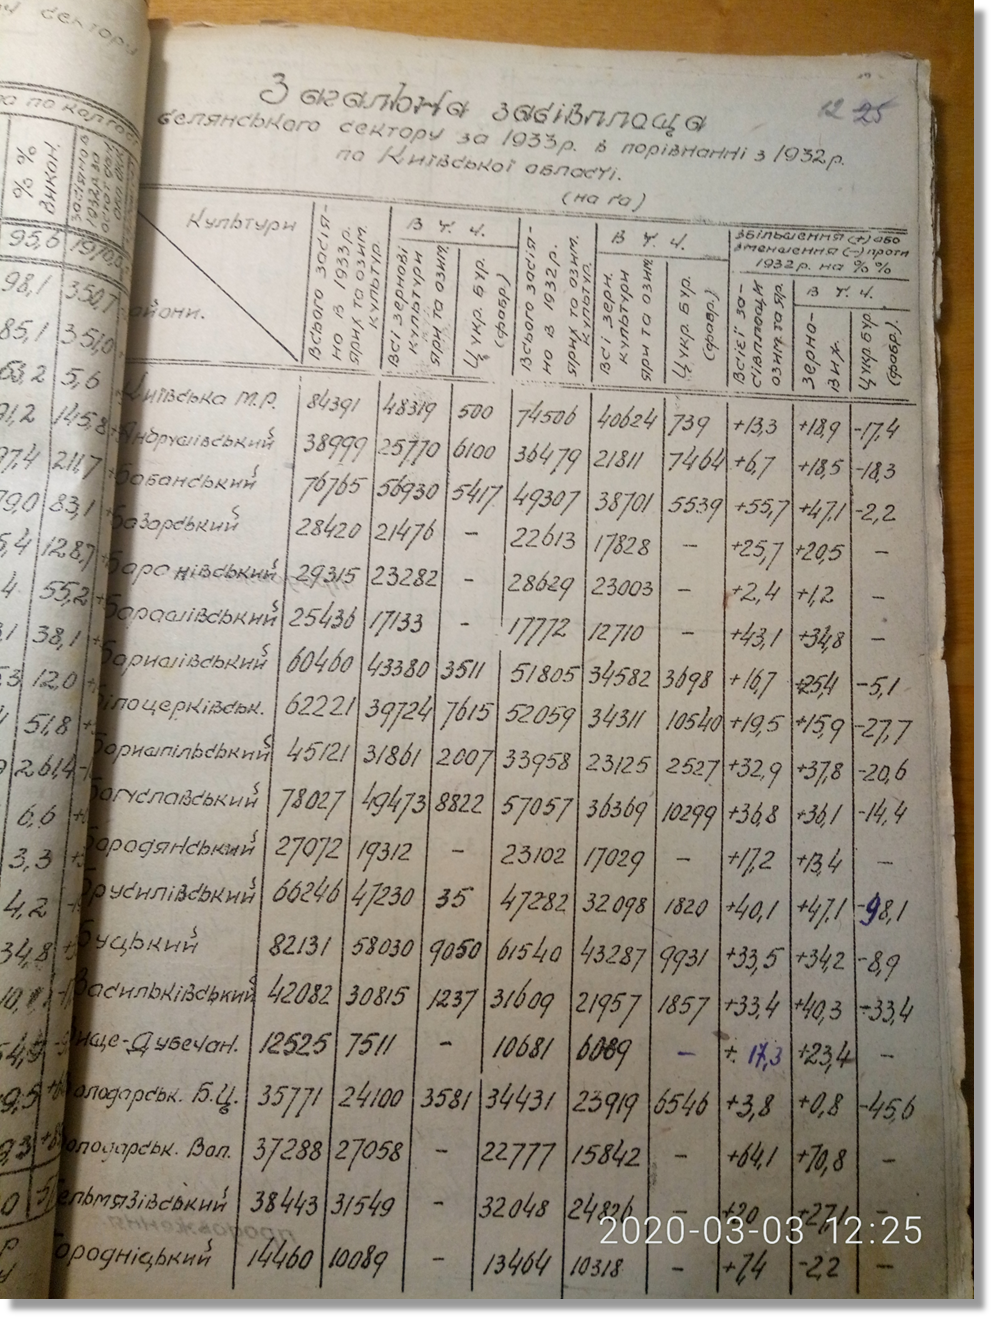 12 25
Загальна засівплоща
селянського сектору за 1933р. в порівнанні з 1932р.
по Київської області.
(на га)
Культури
Райони.
Всього засія-
но в 1933р.
ярих та озим.
культур
В т. ч.
Всі зернові
культури
ярі та озим.
Цукр. бур.
(фабр.)
Всього засія-
но в 1932р.
ярих та озим.
культур.
В т. ч.
Всі зерн.
культури
ярі та озим.
Цукр. бур.
(фабр.)
Збільшення (+) або
зменшення (-) проти
1932р. на %%
Всієї за-
сівплощі
озим. та яр.
В т. ч.
Зерно-
вих.
Цукр. бур.
(фабр.).
Київська М.Р. 84391 48319 500 74506 40624 739 +13,3 +18,9 -17,4
Андрушівський 38999 25770 6100 36479 21811 7464 +6,7 +18,5 -18,3
Бабанський 76765 56930 5417 49307 38701 5539 +55,7 +47,1 -2,2
Базарський 28420 21476 – 22613 17828 – +25,7 +20,5 –
Баранівський 29315 23282 – 28629 23003 – +2,4 +1,2 –
Барашівський 25436 17133 – 17772 12710 – +43,1 +34,8 –
Баришівський 60460 43380 3511 51805 34582 3698 +16,7 +25,4 -5,1
Білоцерківськ. 62221 39724 7615 52059 34311 10540 +19,5 +15,9 -27,7
Бориспільський 45121 31861 2007 33958 23125 2527 +32,9 +37,8 -20,6
Богуславський 78027 49473 8822 57057 36369 10299 +36,8 +36,1 -14,4
Бородянський 27072 19312 – 23102 17029 – +17,2 +13,4 –
Брусилівський 66246 47230 35 47282 32098 1820 +40,1 +47,1 -98,1
Буцький 82131 58030 9050 61540 43287 9931 +33,5 +34,2 -8,9
Васильківський 42082 30815 1237 31609 21957 1857 +33,4 +40,3 -33,4
Вище-Дубечан. 12525 7511 – 10681 6089 – +. 17,3 +23,4 –
Володарськ. Б.Ц. 35771 24100 3581 34431 23919 6546 +3,8 +0,8 -45,6
Володарськ. Вол. 37288 27058 – 22777 15842 – +64,1 +70,8 –
Гельмязівський 38443 31549 – 32048 24826 – +20 +27,1 –
Городніцький 14460 10089 – 13464 10318 – +7,4 -2,2 –
2020-03-03 12:25
%%
викон.
95,6
98,1 350,7
85,1 351,0
63,2 5,6
91,2 145,8
97,4 211,7
79,0 83,1
128,7
55,2
38,1
12,0
51,8
261,4
6,6
3,3
4,2
34,8